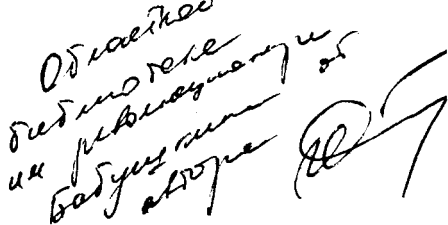 Областной
библиотеке
им революционера
Бабушкина от
автора